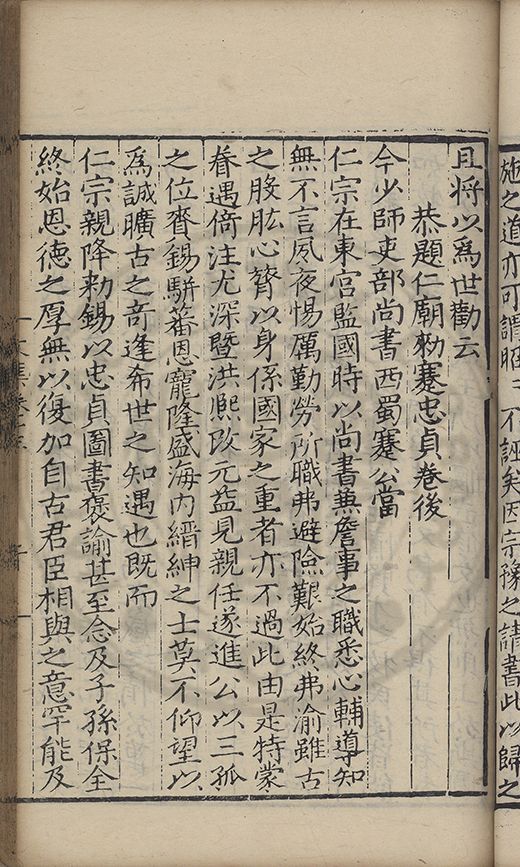 施之道亦可謂昭二不誣矣因宗豫之請書此以歸之
且將以爲世勸云
恭題仁廟勑蹇忠貞卷後
今少師吏部尚書西蜀蹇公當
仁宗在東宮監國時以尚書兼詹事之職悉心輔導知
無不言夙夜惕厲勤勞所職弗避險艱始終弗渝雖古
之股肱心膂以身係國家之重者亦不過此由是特蒙
眷遇倚注尤深暨洪熈改元益見親任遂進公以三孤
之位賚錫駢蕃恩寵隆盛海内縉紳之士莫不仰望以
爲誠曠古之奇逢希世之知遇也既而
仁宗親降勑錫以忠貞圖書褒諭甚至念及子孫保全
終始恩德之厚無以復加自古君臣相與之意罕能及